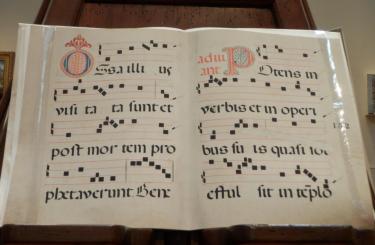 Ossa illi us
visi ta ta sunt et
post mor tem pro
phetaverunt Bene
adiu
ant Potens in
verbis et in operi
bus su is quasi
est ful sit in tēplo